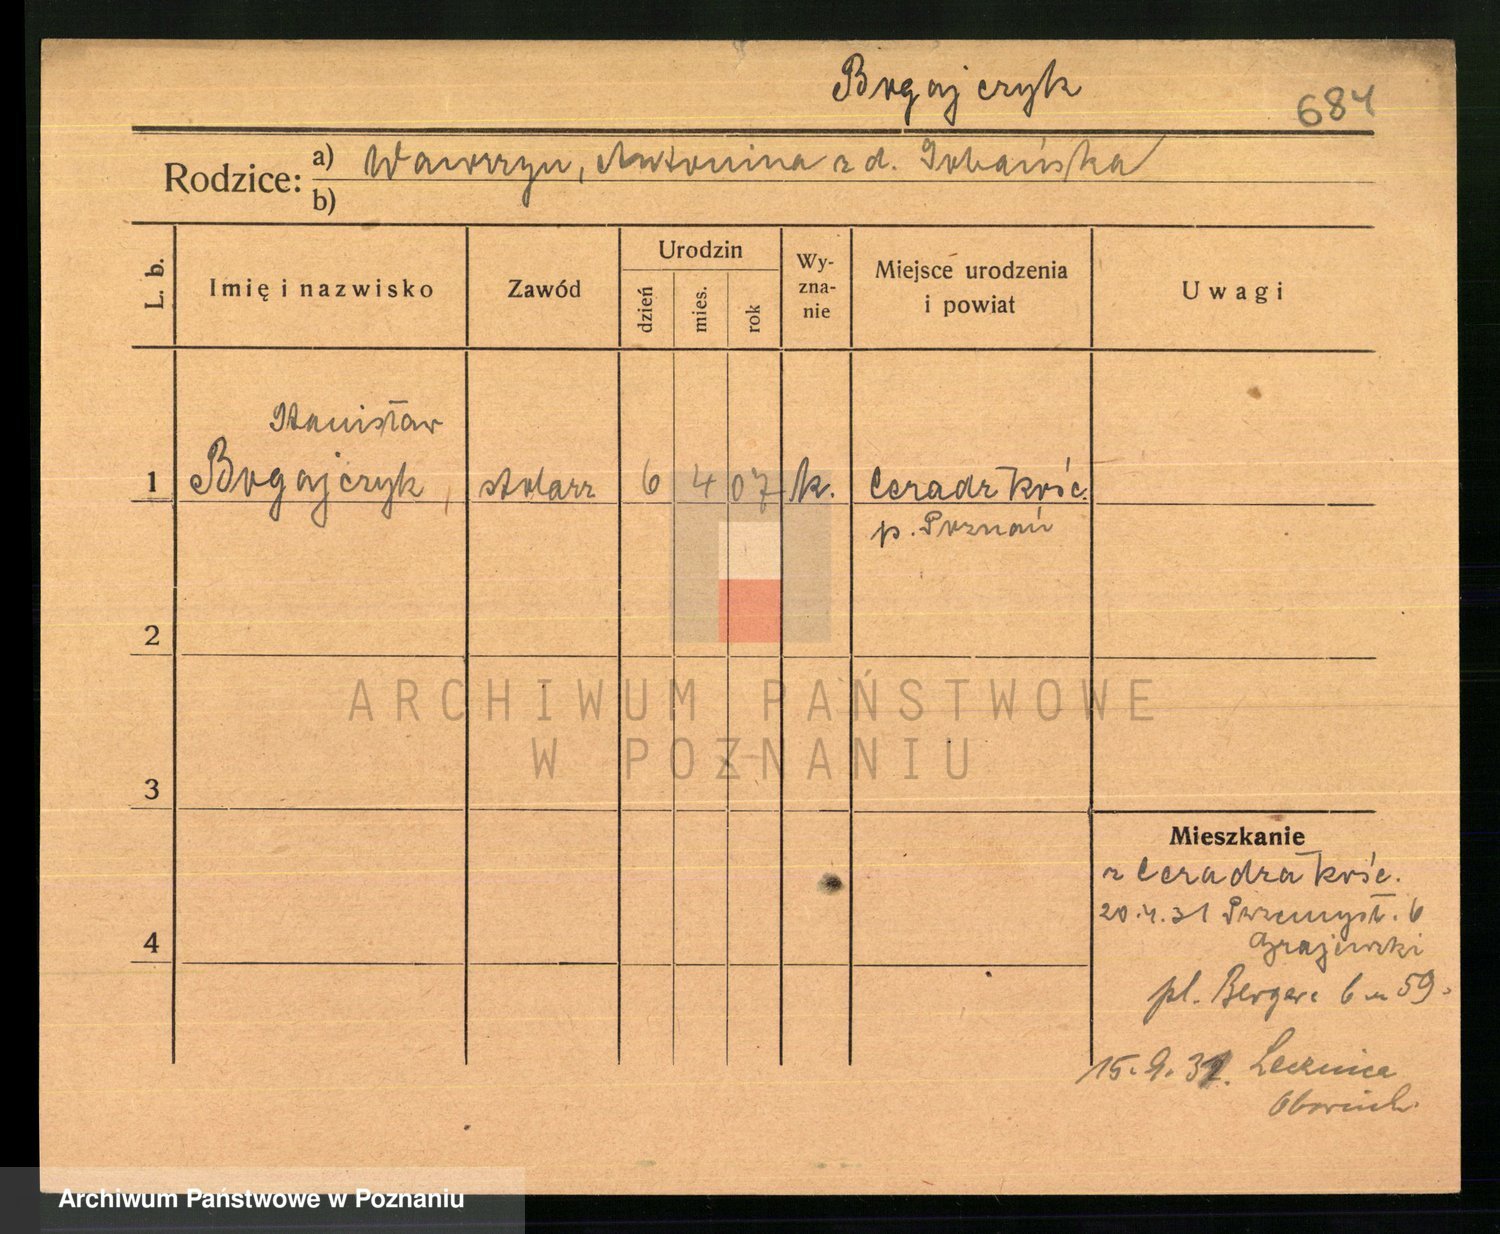 Bogajczyk
684
Rodzice: a) Wawrzyn, Antonina z d. Urbańska
b)
L. b.
Imię i nazwisko
Zawód
Urodzin
dzień
mies.
rok
Wy-
zna-
nie
Miejsce urodzenia
i powiat
Uwagi
Stanisław
1 Bogajczyk stolarz 6 4 07 k. Ceradz kośc.
p. Poznań
2
ARCHIWUM PAŃSTWOWE
W POZNANIU
3
Mieszkanie
z Ceradza kośc.
20.4.31 Przemysł. 6
Grajewski
4
pl. Bergera 6 m 59.
15.9.31. Lecznica
Archiwum Państwowe w Poznaniu